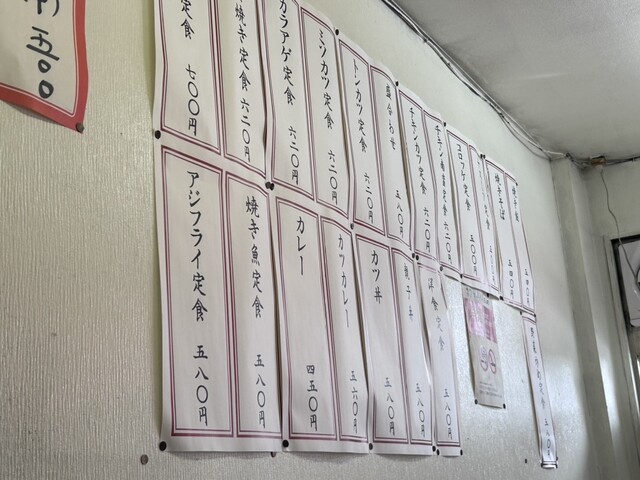 五〇〇
定食 七〇〇円
焼き定食 六二〇円
カラアゲ定食 六二〇円
ミンカツ定食 六二〇円
トンカツ定食 六二〇円
盛合わせ 五八〇円
チキンカツ定食 六二〇円
チキン 定食 六二〇円
コロッケ定食 五〇〇
定食
焼きそば 五四〇円
アジフライ定食 五八〇円
焼き魚定食 五八〇円
カレー 四五〇円
カツカレー 五六〇円
カツ丼 五八〇円
親子丼 五八〇円
洋食定食 五八〇円